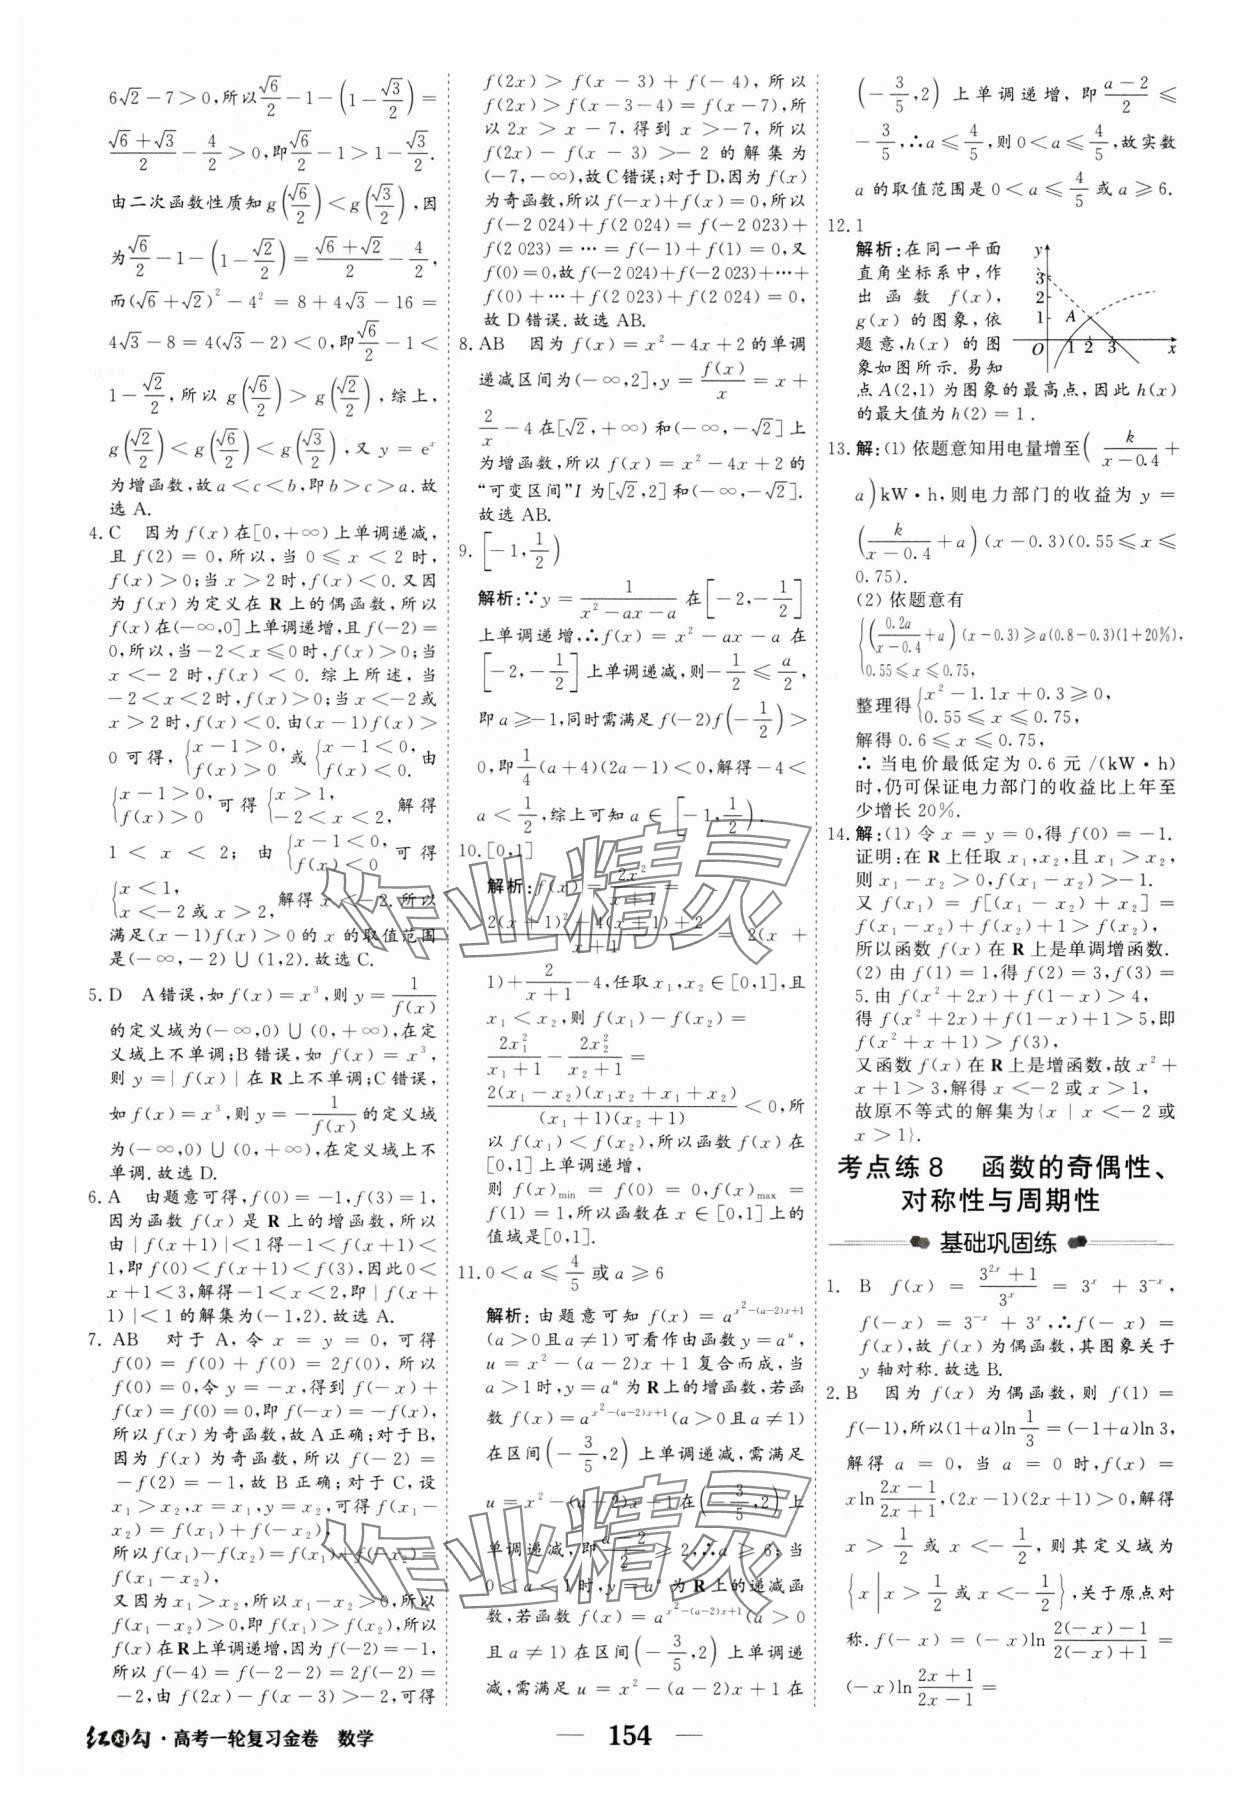 6√2－7＞0,所以√6/2－1－(1－√3/2)＝
(√6＋√3)/2－4/2＞0,即√6/2－1＞1－√3/2.
由二次函数性质知g(√6/2)＜g(√3/2),因
为√6/2－1－(1－√2/2)＝(√6＋√2)/2－4/2,
而(√6＋√2)²－4²＝8＋4√3－16＝
4√3－8＝4(√3－2)＜0,即√6/2－1＜
1－√2/2,所以g(√6/2)＞g(√2/2),综上,
g(√2/2)＜g(√6/2)＜g(√3/2),又y＝eˣ
为增函数,故a＜c＜b,即b＞c＞a.故
选A.
4.C 因为f(x)在[0,＋∞)上单调递减,
且f(2)＝0,所以,当0≤x＜2时,
f(x)＞0;当x＞2时,f(x)＜0.又因
为f(x)为定义在R上的偶函数,所以
f(x)在(－∞,0]上单调递增,且f(－2)＝
0,所以,当－2＜x≤0时,f(x)＞0;当
x＜－2时,f(x)＜0.综上所述,当
－2＜x＜2时,f(x)＞0;当x＜－2或
x＞2时,f(x)＜0.由(x－1)f(x)＞
0可得,{x－1＞0,f(x)＞0或{x－1＜0,f(x)＜0.由
{x－1＞0,f(x)＞0可得{x＞1,－2＜x＜2,解得
1＜x＜2;由{x－1＜0,f(x)＜0可得
{x＜1,x＜－2或x＞2,解得x＜－2.所以
满足(x－1)f(x)＞0的x的取值范围
是(－∞,－2)∪(1,2).故选C.
5.D A错误,如f(x)＝x³,则y＝1/f(x)
的定义域为(－∞,0)∪(0,＋∞),在定
义域上不单调;B错误,如f(x)＝x³,
则y＝|f(x)|在R上不单调;C错误,
如f(x)＝x³,则y＝－1/f(x)的定义域
为(－∞,0)∪(0,＋∞),在定义域上不
单调.故选D.
6.A 由题意可得,f(0)＝－1,f(3)＝1,
因为函数f(x)是R上的增函数,所以
由|f(x＋1)|＜1得－1＜f(x＋1)＜
1,即f(0)＜f(x＋1)＜f(3),因此0＜
x＋1＜3,解得－1＜x＜2,即|f(x＋
1)|＜1的解集为(－1,2).故选A.
7.AB 对于A,令x＝y＝0,可得
f(0)＝f(0)＋f(0)＝2f(0),所以
f(0)＝0,令y＝－x,得到f(x)＋
f(－x)＝f(0)＝0,即f(－x)＝－f(x),
所以f(x)为奇函数,故A正确;对于B,
因为f(x)为奇函数,所以f(－2)＝
－f(2)＝－1,故B正确;对于C,设
x₁＞x₂,x＝x₁,y＝－x₂,可得f(x₁－
x₂)＝f(x₁)＋f(－x₂),
所以f(x₁)－f(x₂)＝f(x₁)＋f(－x₂)＝
f(x₁－x₂),
又因为x₁＞x₂,所以x₁－x₂＞0,所以
f(x₁－x₂)＞0,即f(x₁)＞f(x₂),所以
f(x)在R上单调递增,因为f(－2)＝－1,
所以f(－4)＝f(－2－2)＝2f(－2)＝
－2,由f(2x)－f(x－3)＞－2,可得
f(2x)＞f(x－3)＋f(－4),所以
f(2x)＞f(x－3－4)＝f(x－7),所
以2x＞x－7,得到x＞－7,所以
f(2x)－f(x－3)＞－2的解集为
(－7,－∞),故C错误;对于D,因为f(x)
为奇函数,所以f(－x)＋f(x)＝0,所以
f(－2 024)＋f(2 024)＝f(－2 023)＋
f(2 023)＝…＝f(－1)＋f(1)＝0,又
f(0)＝0,故f(－2 024)＋f(－2 023)＋…＋
f(0)＋…＋f(2 023)＋f(2 024)＝0,
故D错误.故选AB.
8.AB 因为f(x)＝x²－4x＋2的单调
递减区间为(－∞,2],y＝f(x)/x＝x＋
2/x－4在[√2,＋∞)和(－∞,－√2]上
为增函数,所以f(x)＝x²－4x＋2的
“可变区间”I为[√2,2]和(－∞,－√2].
故选AB.
9.[－1,1/2)
解析:∵y＝1/(x²－ax－a)在[－2,－1/2]
上单调递增,∴f(x)＝x²－ax－a在
[－2,－1/2]上单调递减,则－1/2≤a/2,
即a≥－1,同时需满足f(－2)f(－1/2)＞
0,即1/4(a＋4)(2a－1)＜0,解得－4＜
a＜1/2,综上可知a∈[－1,1/2).
10.[0,1]
解析:f(x)＝2x²/(x＋1)＝
(2(x＋1)²－4(x＋1)＋2)/(x＋1)＝2(x＋
1)＋2/(x＋1)－4,任取x₁,x₂∈[0,1],且
x₁＜x₂,则f(x₁)－f(x₂)＝
2x₁²/(x₁＋1)－2x₂²/(x₂＋1)＝
2(x₁－x₂)(x₁x₂＋x₁＋x₂)/((x₁＋1)(x₂＋1))＜0,所
以f(x₁)＜f(x₂),所以函数f(x)在
[0,1]上单调递增,
则f(x)min＝f(0)＝0,f(x)max＝
f(1)＝1,所以函数在x∈[0,1]上的
值域是[0,1].
11.0＜a≤4/5或a≥6
解析:由题意可知f(x)＝a^(x²－(a－2)x＋1)
(a＞0且a≠1)可看作由函数y＝aᵘ,
u＝x²－(a－2)x＋1复合而成,当
a＞1时,y＝aᵘ为R上的增函数,若函
数f(x)＝a^(x²－(a－2)x＋1)(a＞0且a≠1)
在区间(－3/5,2)上单调递减,需满足
u＝x²－(a－2)x＋1在(－3/5,2)上
单调递减,即(a－2)/2≥2,∴a≥6;当
0＜a＜1时,y＝aᵘ为R上的递减函
数,若函数f(x)＝a^(x²－(a－2)x＋1)(a＞0
且a≠1)在区间(－3/5,2)上单调递
减,需满足u＝x²－(a－2)x＋1在
(－3/5,2)上单调递增,即(a－2)/2≤
－3/5,∴a≤4/5,则0＜a≤4/5,故实数
a的取值范围是0＜a≤4/5或a≥6.
12.1
解析:在同一平面
直角坐标系中,作
出函数f(x),
g(x)的图象,依
题意,h(x)的图
象如图所示.易知
点A(2,1)为图象的最高点,因此h(x)
的最大值为h(2)＝1.
y
3
2
1
A
O
1 2 3
x
13.解:(1)依题意知用电量增至(k/(x－0.4)＋
a)kW·h,则电力部门的收益为y＝
(k/(x－0.4)＋a)(x－0.3)(0.55≤x≤
0.75).
(2)依题意有
{(0.2a/(x－0.4)＋a)(x－0.3)≥a(0.8－0.3)(1＋20%),
0.55≤x≤0.75,
整理得{x²－1.1x＋0.3≥0,
0.55≤x≤0.75,
解得0.6≤x≤0.75,
∴当电价最低定为0.6元/(kW·h)
时,仍可保证电力部门的收益比上年至
少增长20%.
14.解:(1)令x＝y＝0,得f(0)＝－1.
证明:在R上任取x₁,x₂,且x₁＞x₂,
则x₁－x₂＞0,f(x₁－x₂)＞－1.
又f(x₁)＝f[(x₁－x₂)＋x₂]＝
f(x₁－x₂)＋f(x₂)＋1＞f(x₂),
所以函数f(x)在R上是单调增函数.
(2)由f(1)＝1,得f(2)＝3,f(3)＝
5.由f(x²＋2x)＋f(1－x)＞4,
得f(x²＋2x)＋f(1－x)＋1＞5,即
f(x²＋x＋1)＞f(3),
又函数f(x)在R上是增函数,故x²＋
x＋1＞3,解得x＜－2或x＞1,
故原不等式的解集为{x|x＜－2或
x＞1}.
考点练8 函数的奇偶性、
对称性与周期性
基础巩固练
1. B f(x)＝(3²ˣ＋1)/3ˣ＝3ˣ＋3⁻ˣ,
f(－x)＝3⁻ˣ＋3ˣ,∴f(－x)＝
f(x),故f(x)为偶函数,其图象关于
y轴对称.故选B.
2.B 因为f(x)为偶函数,则f(1)＝
f(－1),所以(1＋a)ln 1/3＝(－1＋a)ln 3,
解得a＝0,当a＝0时,f(x)＝
xln (2x－1)/(2x＋1),(2x－1)(2x＋1)＞0,解得
x＞1/2或x＜－1/2,则其定义域为
{x|x＞1/2或x＜－1/2},关于原点对
称.f(－x)＝(－x)ln (2(－x)－1)/(2(－x)＋1)＝
(－x)ln (2x＋1)/(2x－1)＝
红对勾·高考一轮复习金卷 数学
— 154 —
作业精灵
作业精灵